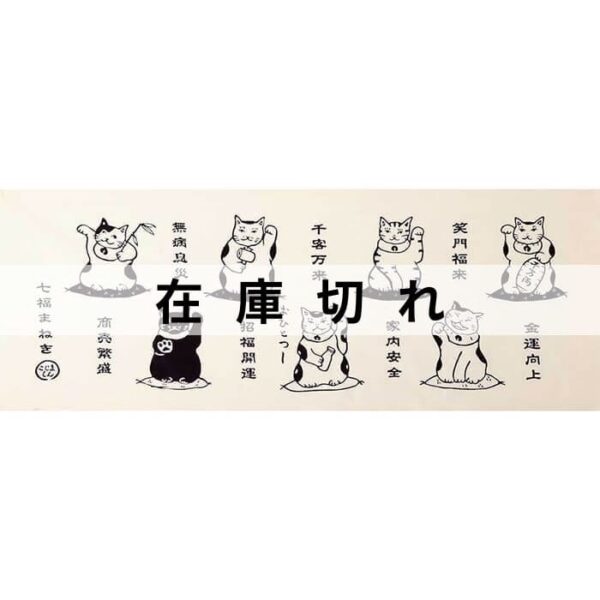 笑門福来
金運向上
千客万来
家内安全
おひとつー
無病息災
招福開運
商売繁盛
七福まねき
在庫切れ